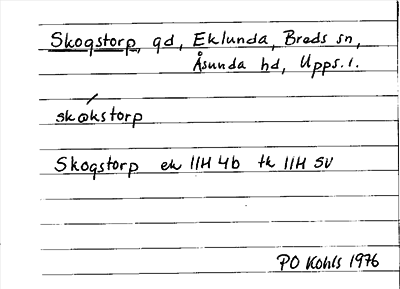 Skogstorp, gd, Eklunda, Breds sn,
Åsunda hd, Upps. l.
skɷkstorp
Skogstorp ek 11H 4b tk 11H SV
PO Kohls 1976